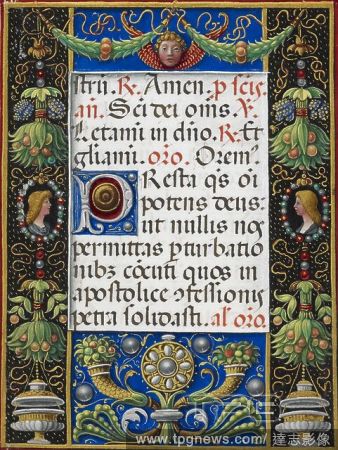 strii. R. Amen. p̱ scis.
añ. Sci dei oms̄. V.
Letami in dño. R. Et
gliami. oro. Orem⁹
PResta qs̄ oī
potens deus:
ut nullis nos
permittas pturbatio
nibꝫ cōcuti quos in
apostolice ↄfessionis
petra solidasti. al̄ oro.
www.tpgnews.com / 達志影像